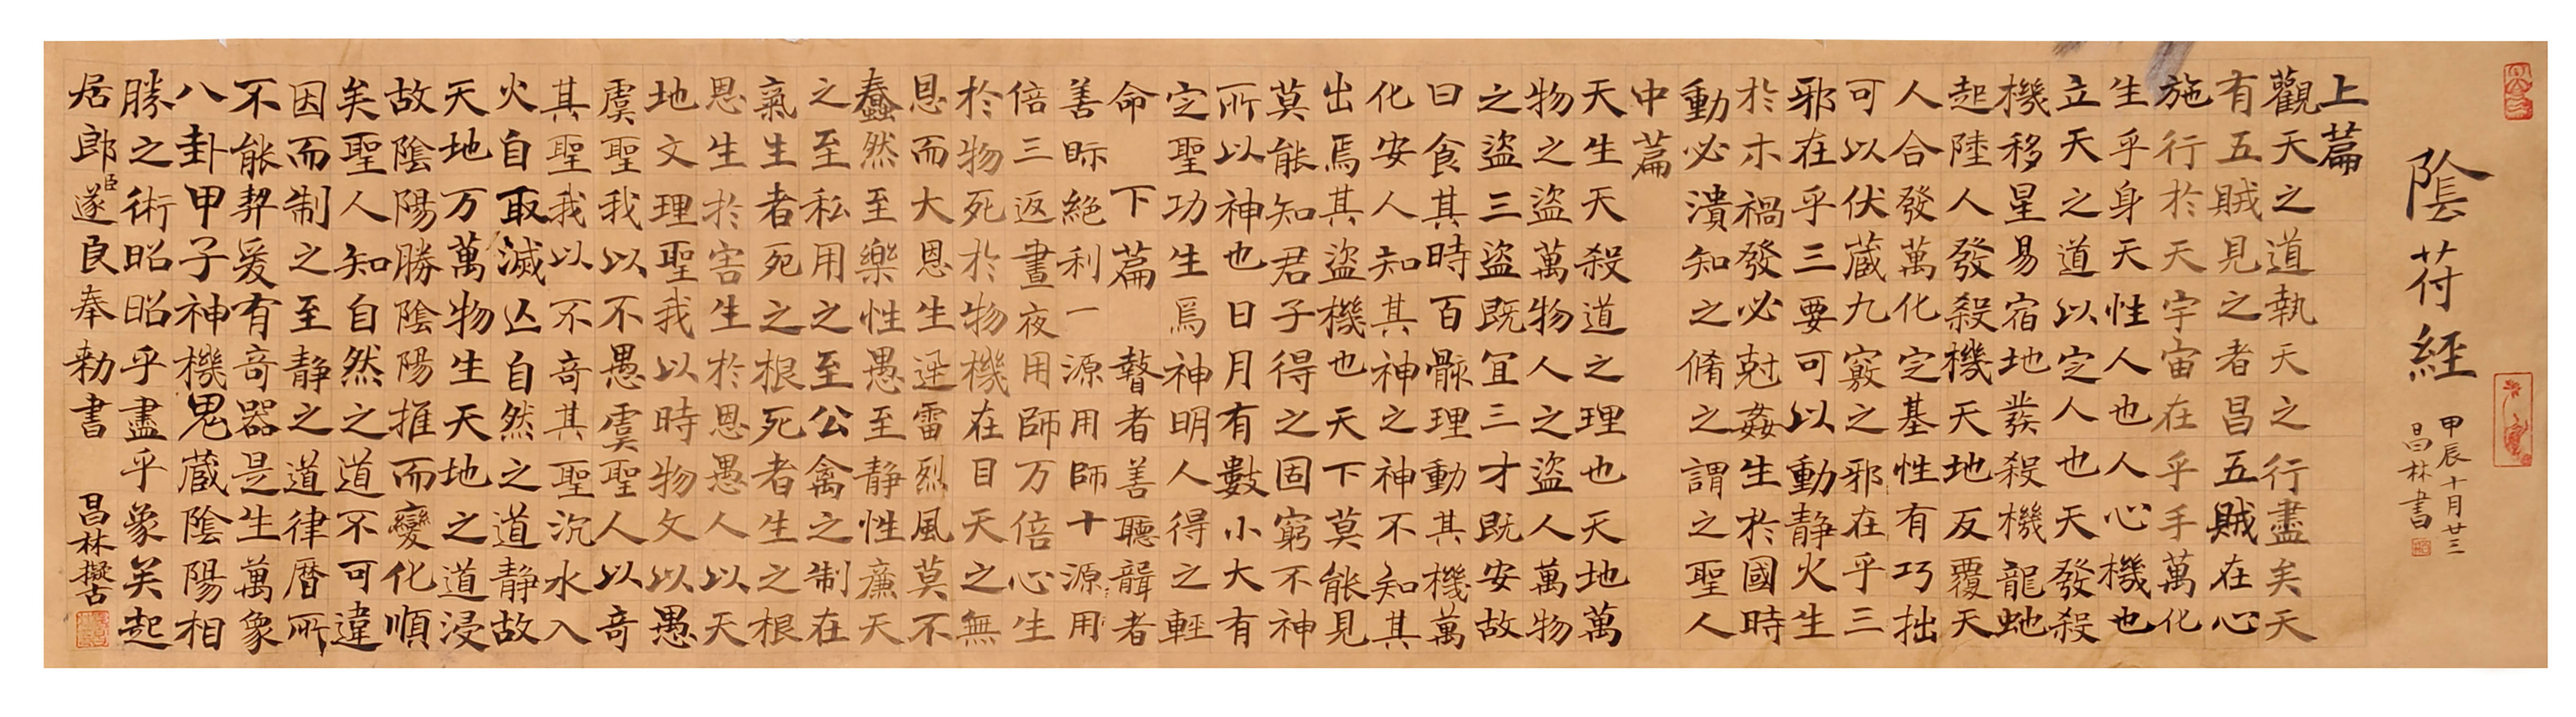 陰苻經
甲辰十月廿三
昌林書
上篇
觀天之道執天之行盡矣天
有五賊見之者昌五賊在心
施行於天宇宙在乎手萬化
生乎身天性人也人心機也
立天之道以定人也天發殺
機移星易宿地發殺機龍虵
起陸人發殺機天地反覆天
人合發萬化定基性有巧拙
可以伏藏九竅之邪在乎三
邪在乎三要可以動静火生
於木禍發必尅姦生於國時
動必潰知之脩之謂之聖人
中篇
天生天殺道之理也天地萬
物之盜萬物人之盜人萬物
之盜三盜既宜三才既安故
曰食其時百骸理動其機萬
化安人知其神之神不知其
出焉其盜機也天下莫能見
莫能知君子得之固窮不神
所以神也日月有數小大有
定聖功生焉神明人得之輕
命 下篇 瞽者善聽聾者
善眎絕利一源用師十源用
倍三返晝夜用師万倍心生
於物死於物機在目天之無
恩而大恩生迅雷烈風莫不
蠢然至樂性愚至静性廉天
之至私用之至公禽之制在
氣生者死之根死者生之根
恩生於害生於恩愚人以天
地文理聖我以時物文以愚
虞聖我以不愚虞聖人以奇
其聖我以不奇其聖沉水入
火自取滅亡自然之道静故
天地万萬物生天地之道浸
故陰陽勝陰陽推而變化順
矣聖人知自然之道不可違
因而制之至静之道律曆所
不能契爰有奇器是生萬象
八卦甲子神機鬼藏陰陽相
勝之術昭昭乎盡乎象矣起
居郎臣遂良奉勅書
昌林擬古